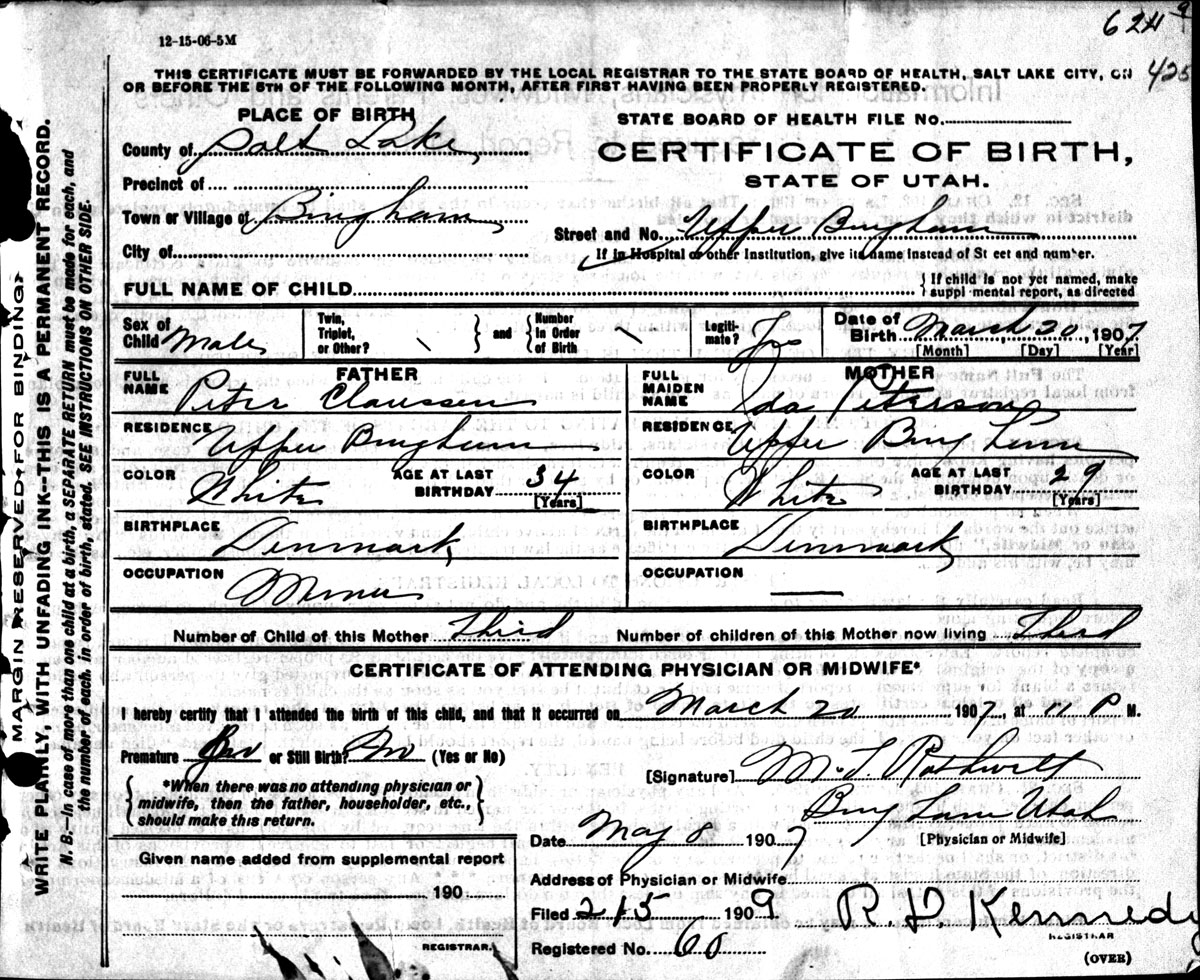 12-15-06-5M
624 9
425
THIS CERTIFICATE MUST BE FORWARDED BY THE LOCAL REGISTRAR TO THE STATE BOARD OF HEALTH, SALT LAKE CITY, ON
OR BEFORE THE 5TH OF THE FOLLOWING MONTH, AFTER FIRST HAVING BEEN PROPERLY REGISTERED.
PLACE OF BIRTH
County of Salt Lake
Precinct of
Town or Village of Bingham
City of
STATE BOARD OF HEALTH FILE No.
CERTIFICATE OF BIRTH,
STATE OF UTAH.
Street and No. Upper Bingham
If in Hospital or other Institution, give its name instead of St eet and number.
FULL NAME OF CHILD
If child is not yet named, make
suppl mental report, as directed
Sex of Child Male
Twin, Triplet, or Other? \ and Number in Order of Birth \
Legiti- mate? Yes
Date of Birth March 20, 1907
[Month] [Day] [Year]
FATHER
FULL NAME Peter Claussen
RESIDENCE Upper Bingham
COLOR White AGE AT LAST BIRTHDAY 34 [Years]
BIRTHPLACE Denmark
OCCUPATION Miner
MOTHER
FULL MAIDEN NAME Ida Peterson
RESIDENCE Upper Bingham
COLOR White AGE AT LAST BIRTHDAY 29 [Years]
BIRTHPLACE Denmark
OCCUPATION —
Number of Child of this Mother Third Number of children of this Mother now living Third
CERTIFICATE OF ATTENDING PHYSICIAN OR MIDWIFE*
I hereby certify that I attended the birth of this child, and that it occurred on March 20 1907, at 11 P M.
Premature No or Still Birth? No (Yes or No)
*When there was no attending physician or
midwife, then the father, householder, etc.,
should make this return.
[Signature]
Bingham Utah
[Physician or Midwife]
Date May 8 1907
Given name added from supplemental report
190
REGISTRAR.
Address of Physician or Midwife
Filed 2/5 1909. R. D. Kennedy
REGISTRAR
Registered No. 60
(OVER)
MARGIN RESERVED FOR BINDING
WRITE PLAINLY, WITH UNFADING INK—THIS IS A PERMANENT RECORD.
N. B.—In case of more than one child at a birth, a SEPARATE RETURN must be made for each, and
the number of each, in order of birth, stated. SEE INSTRUCTIONS ON OTHER SIDE.